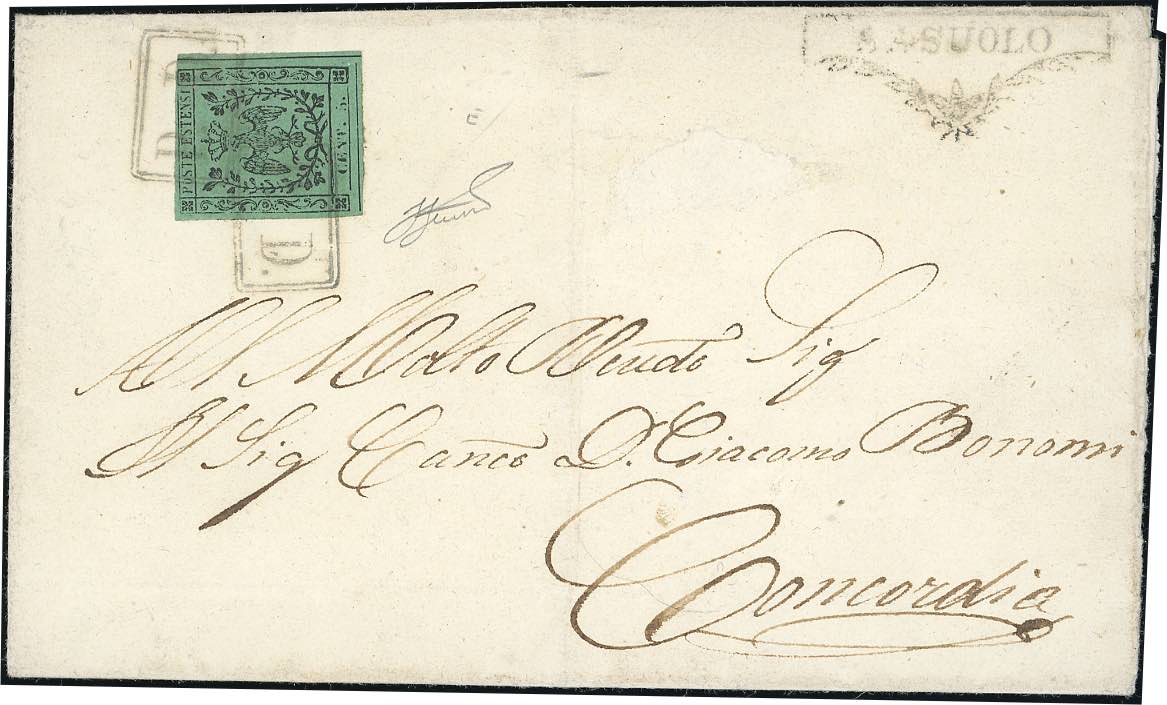 SASUOLO
POSTE ESTENSI
CENT. 5.
P. D.
P. D.
Al Molto Revdo Sig
Il Sig Canco D. Giacomo Bonomi
Concordia